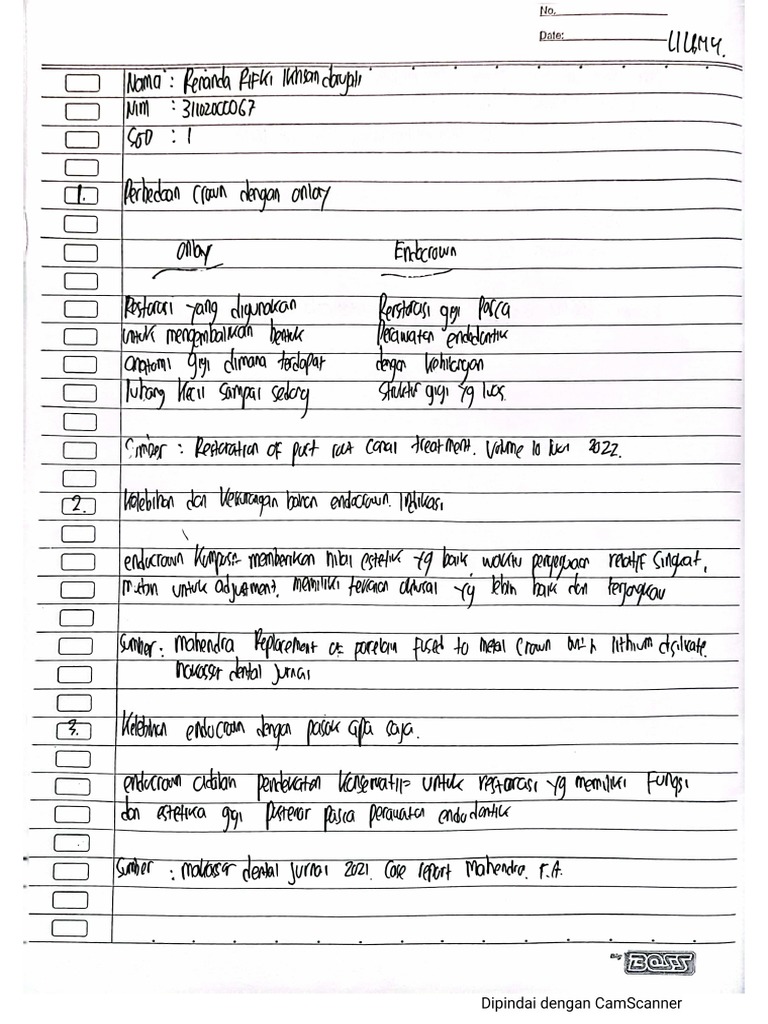 No.
Date:
Nama : Reranda Rifki Ikhsan
Nim : 3110200067
SGD : 1
1. Perbedaan Crown dengan onlay
Onlay Endocrown
Restorasi yang digunakan Rerstorasi gigi Pasca
untuk mengembalikan bentuk Perawatan endodontik
anatomi gigi dimana terdapat dengan kehilangan
lubang kecil sampai sedang Struktur gigi yg luas.
Sumber : Restoration of post root canal treatment. Volume 10 2022.
2. Kelebihan dan kekurangan bahan endocrown. Indikasi
endocrown komposit memberikan nilai estetik yg baik, waktu pengerjaan relatif singkat,
mudah untuk adjustment, memiliki tekanan oklusal yg lebih baik dan terjangkau
Sumber : Mahendra Replacement of porcelain fused to metal crown with lithium disilicate.
Makassar dental jurnal
3. Kelebihan endocrown dengan pasak apa saja.
endocrown adalah pendekatan konservatif untuk restorasi yg memiliki fungsi
dan estetika gigi posterior pasca perawatan endodontik
Sumber : Makassar dental jurnal 2021. Case report Mahendra. F.A.
Big BOSS
Dipindai dengan CamScanner